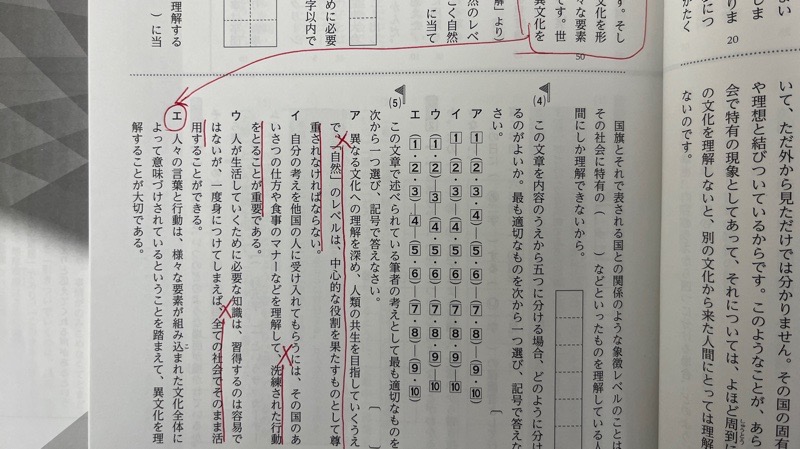 よい
しま
りま
20
につ
かたく
いて、ただ外から見ただけでは分かりません。その国の固有
や理想と結びついているからです。このようなことが、あら
会で特有の現象としてあって、それについては、よほど周到に
の文化を理解しないと、別の文化から来た人間にとっては理解
ないのです。
す。そし
文化を形
々な要素
です。世
50
異文化を
解」より)
然のレベ
こく自然
に当て
めに必要
字以内で
理解する
)に当
国旗とそれで表される国との関係のような象徴レベルのことは
その社会に特有の(　)などといったものを理解している人
間にしか理解できないから。
(4) この文章を内容のうえから五つに分ける場合、どのように分け
るのがよいか。最も適切なものを次から一つ選び、記号で答えな
さい。〔
ア 1―(2・3)―(4・5・6)―(7・8)―(9・10)
イ (1・2・3)―4―(5・6)―(7・8)―(9・10)
ウ 1―(2・3・4)―(5・6)―(7・8・9)―10
エ (1・2・3)―(4・5・6)―(7・8)―9―10
(5) この文章で述べられている筆者の考えとして最も適切なものを
次から一つ選び、記号で答えなさい。〔　〕
ア 異なる文化への理解を深め、人類の共生を目指していくうえ
で、「自然」のレベルは、中心的な役割を果たすものとして尊
重されなければならない。
イ 自分の考えを他国の人に受け入れてもらうには、その国のあ
いさつの仕方や食事のマナーなどを理解して、洗練された行動
をとることが重要である。
ウ 人が生活していくために必要な知識は、習得するのは容易で
はないが、一度身につけてしまえば、全ての社会でそのまま活
用することができる。
エ 人々の言葉と行動は、様々な要素が組み込まれた文化全体に
よって意味づけされているということを踏まえて、異文化を理
解することが大切である。